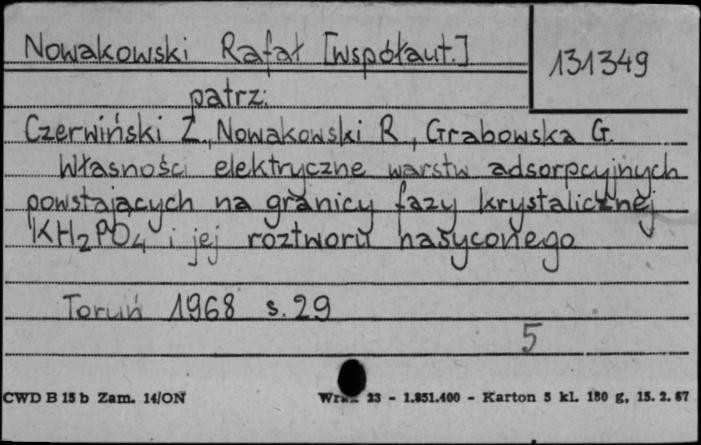 Nowakowski Rafał [współaut.]
131349
patrz:
Czerwiński Z., Nowakowski R., Grabowska G.
Własności elektryczne warstw adsorpcyjnych
powstających na granicy fazy krystalicznej
KH2PO4 i jej roztworu nasyconego
Toruń 1968 s. 29
5
CWD B 15 b Zam. 14/ON
23 - 1.851.400 - Karton 5 kl. 180 g, 15. 2. 67